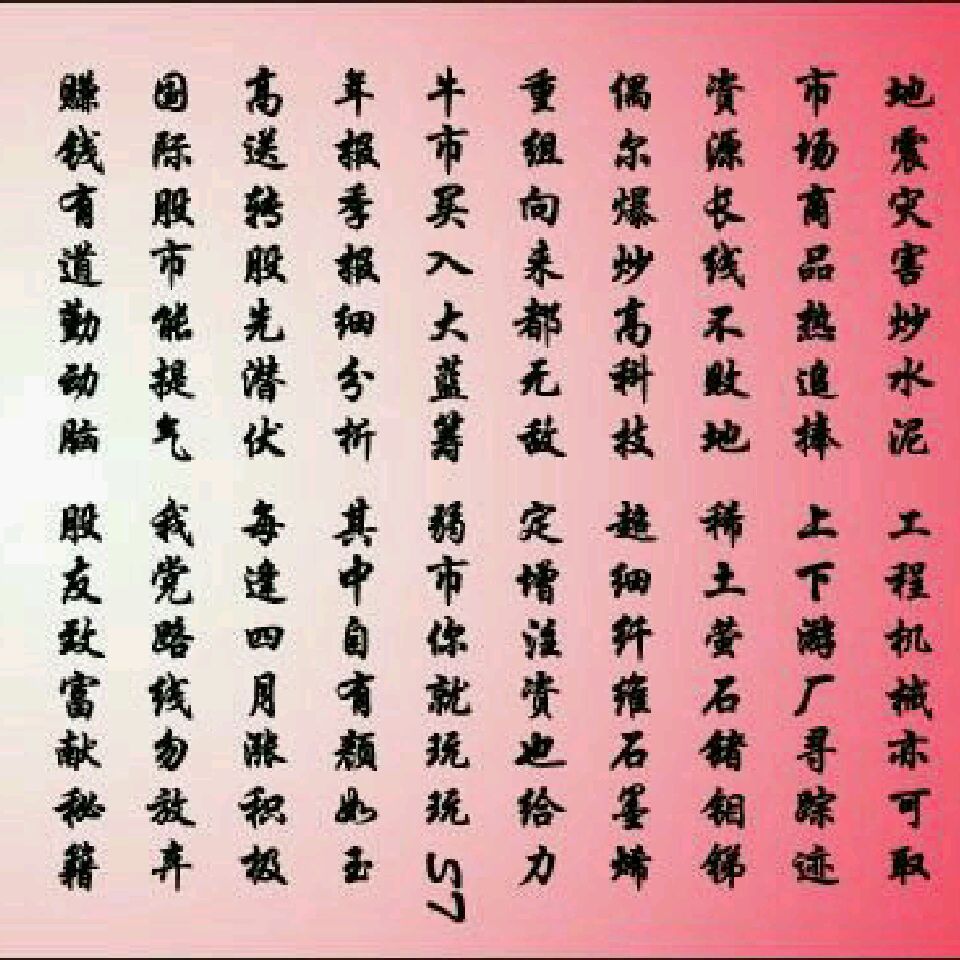 赚钱有道勤动脑 股友致富献秘籍
国际股市能提气 我党路线勿放弃
高送转股先潜伏 每逢四月涨积极
年报季报细分析 其中自有颜如玉
牛市买入大蓝筹 弱市你就玩玩ST
重组向来都无敌 定增注资也给力
偶尔爆炒高科技 超细纤维石墨烯
资源长线不败地 稀土萤石锗钼锑
市场商品热追捧 上下游厂寻踪迹
地震灾害炒水泥 工程机械亦可取